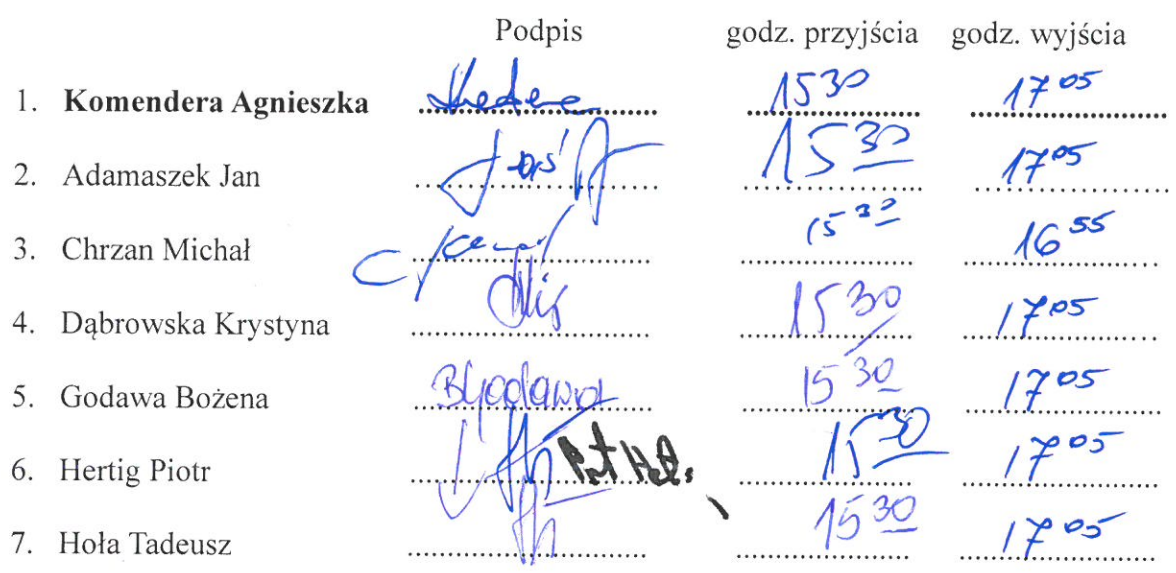 Podpis godz. przyjścia godz. wyjścia
1. Komendera Agnieszka 15 30 17 05
2. Adamaszek Jan 15 30 17 05
3. Chrzan Michał 15 30 16 55
4. Dąbrowska Krystyna 15 30 17 05
5. Godawa Bożena BGodawa 15 30 17 05
6. Hertig Piotr 15 30 17 05
7. Hoła Tadeusz 15 30 17 05